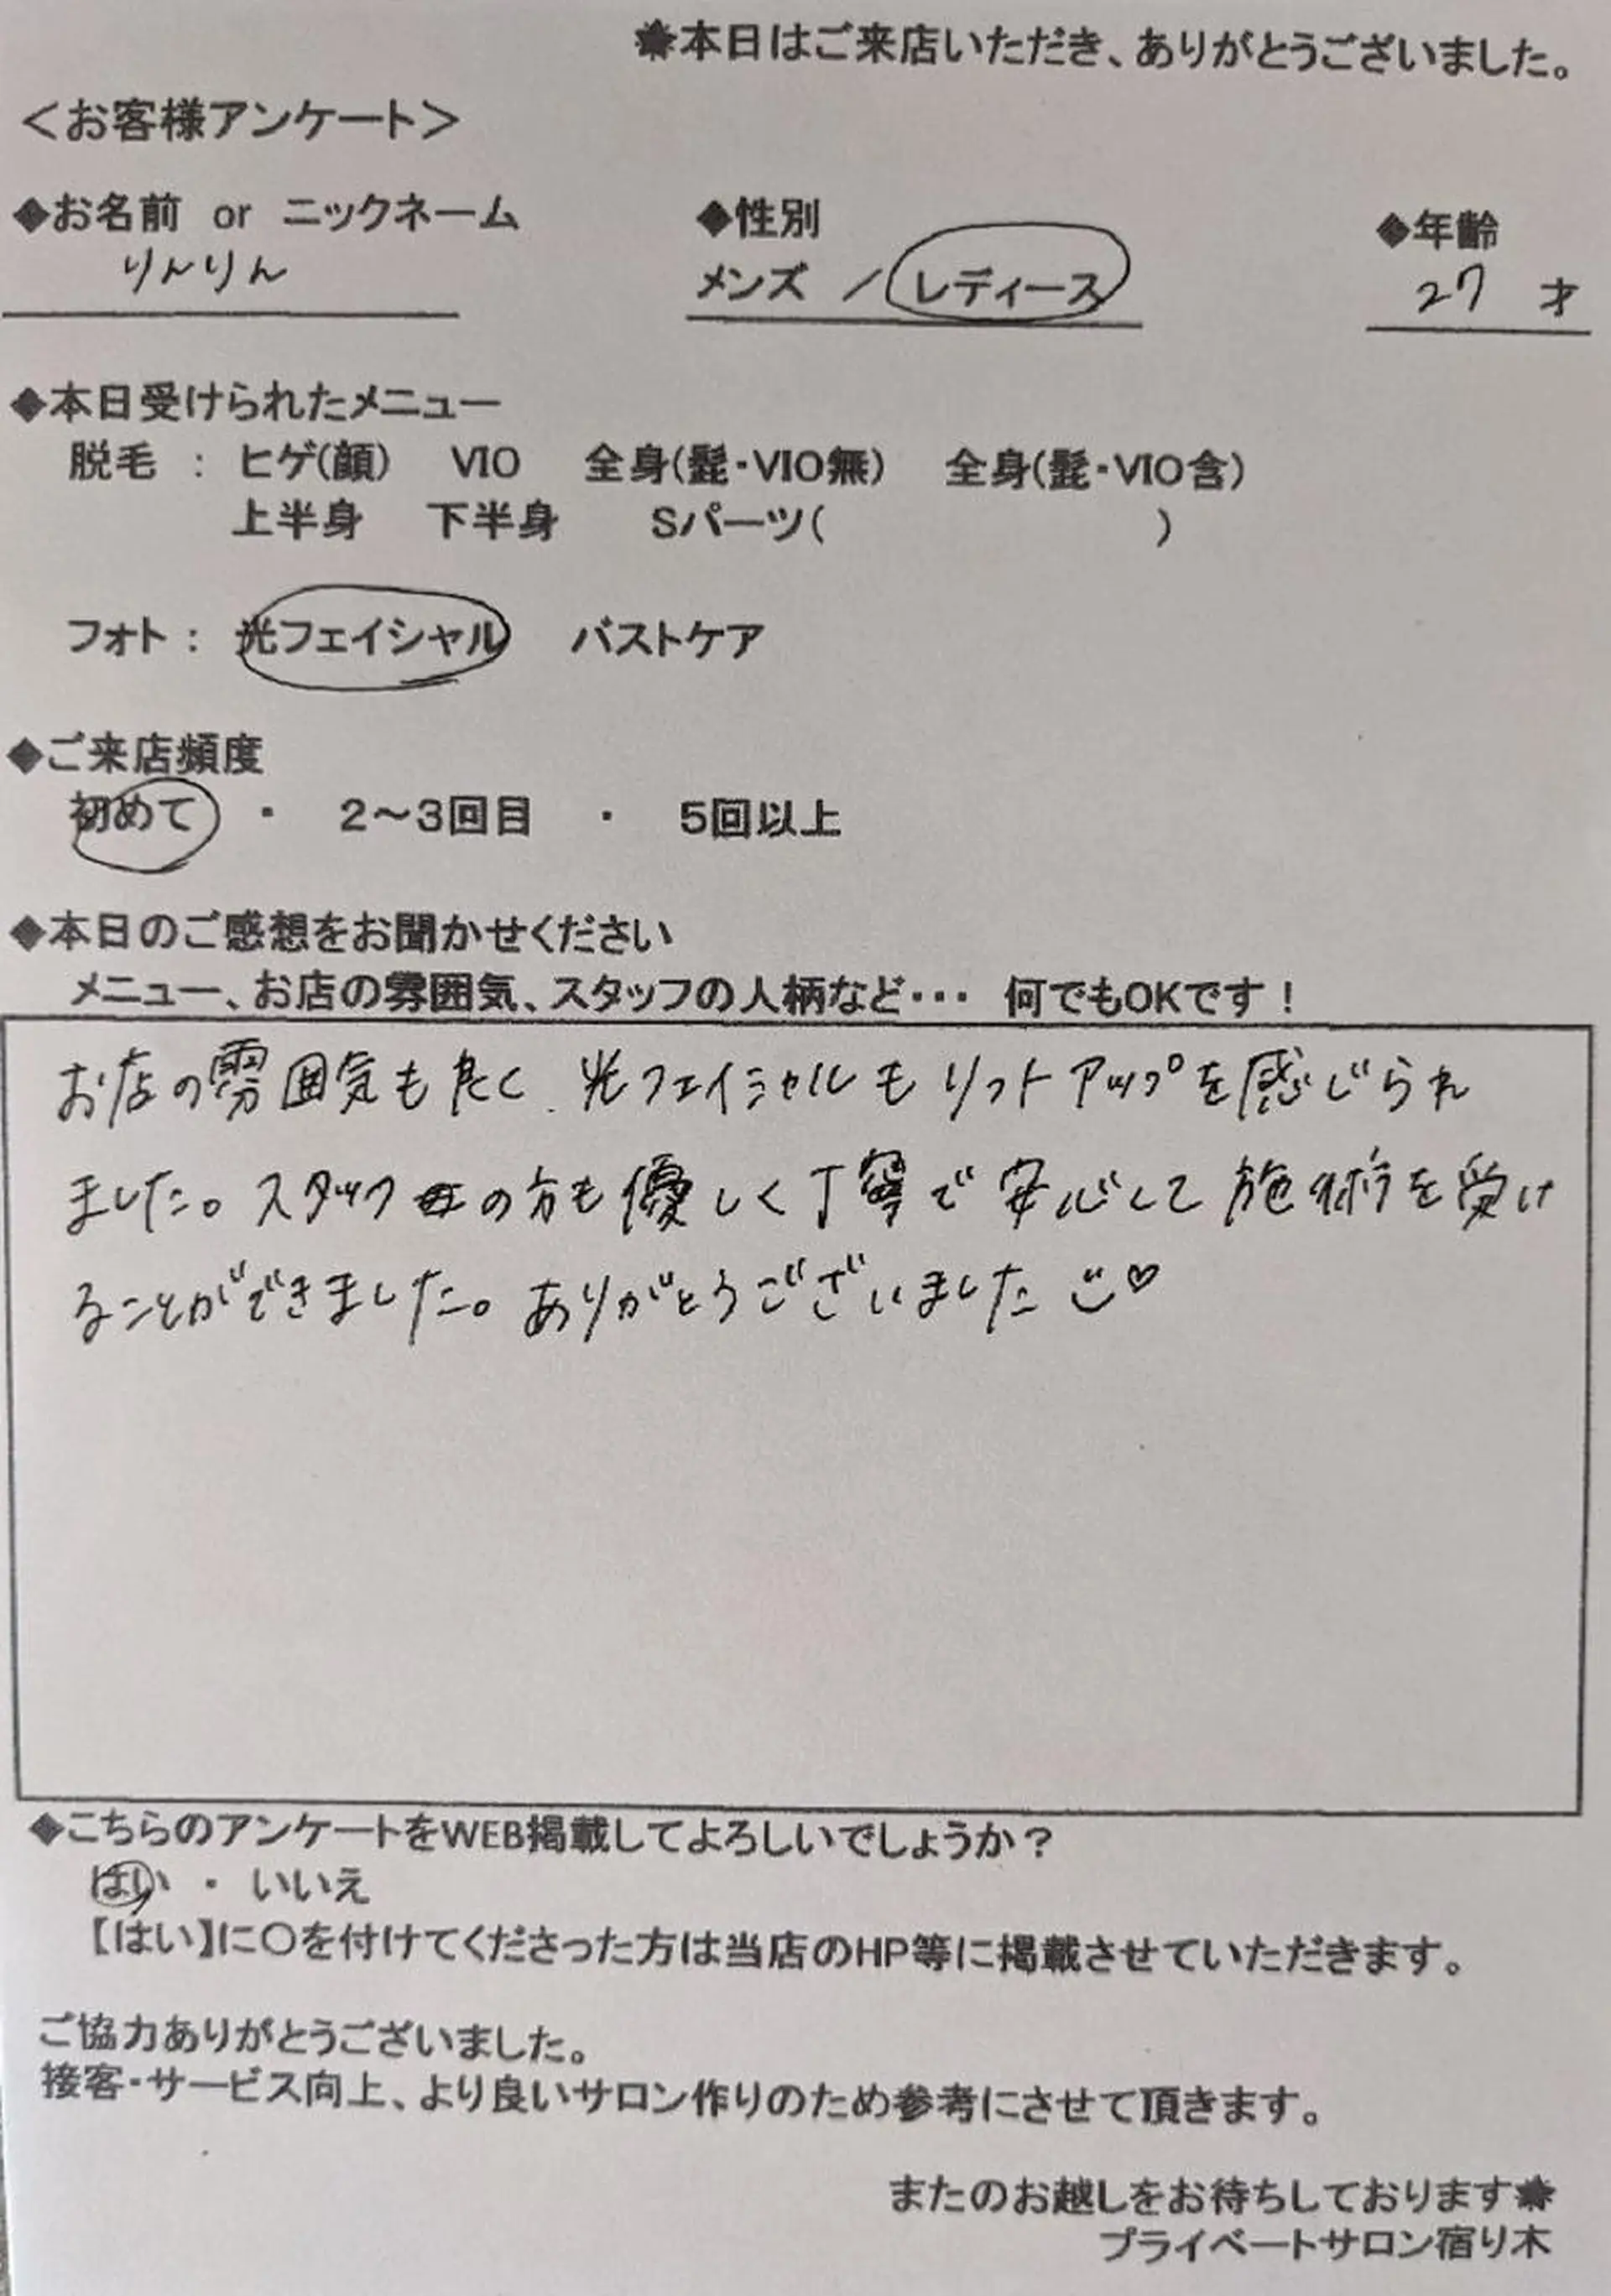 ✹本日はご来店いただき、ありがとうございました。
＜お客様アンケート＞
◆お名前 or ニックネーム ◆性別 ◆年齢
りんりん メンズ ／ レディース 27 才
◆本日受けられたメニュー
脱毛 ： ヒゲ(顔) VIO 全身(髭・VIO無) 全身(髭・VIO含)
上半身 下半身 Sパーツ( )
フォト： 光フェイシャル バストケア
◆ご来店頻度
初めて ・ 2～3回目 ・ 5回以上
◆本日のご感想をお聞かせください
メニュー、お店の雰囲気、スタッフの人柄など・・・ 何でもOKです！
お店の雰囲気も良く、光フェイシャルもリフトアップを感じられ
ました。スタッフの方も優しく丁寧で安心して施術を受け
ることができました。ありがとうございました♡
◆こちらのアンケートをWEB掲載してよろしいでしょうか？
はい ・ いいえ
【はい】に〇を付けてくださった方は当店のHP等に掲載させていただきます。
ご協力ありがとうございました。
接客・サービス向上、より良いサロン作りのため参考にさせて頂きます。
またのお越しをお待ちしております✹
プライベートサロン宿り木